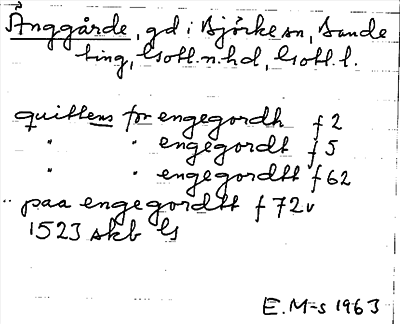 Änggårde, gd i Björke sn, Bande
ting, Gotl. n. hd, Gotl. l.
quittens for engegordh f 2
" " engegordt f 5
" " engegordtt f 62
" paa engegordtt f 72v
1523 skb G
E. M-s 1963